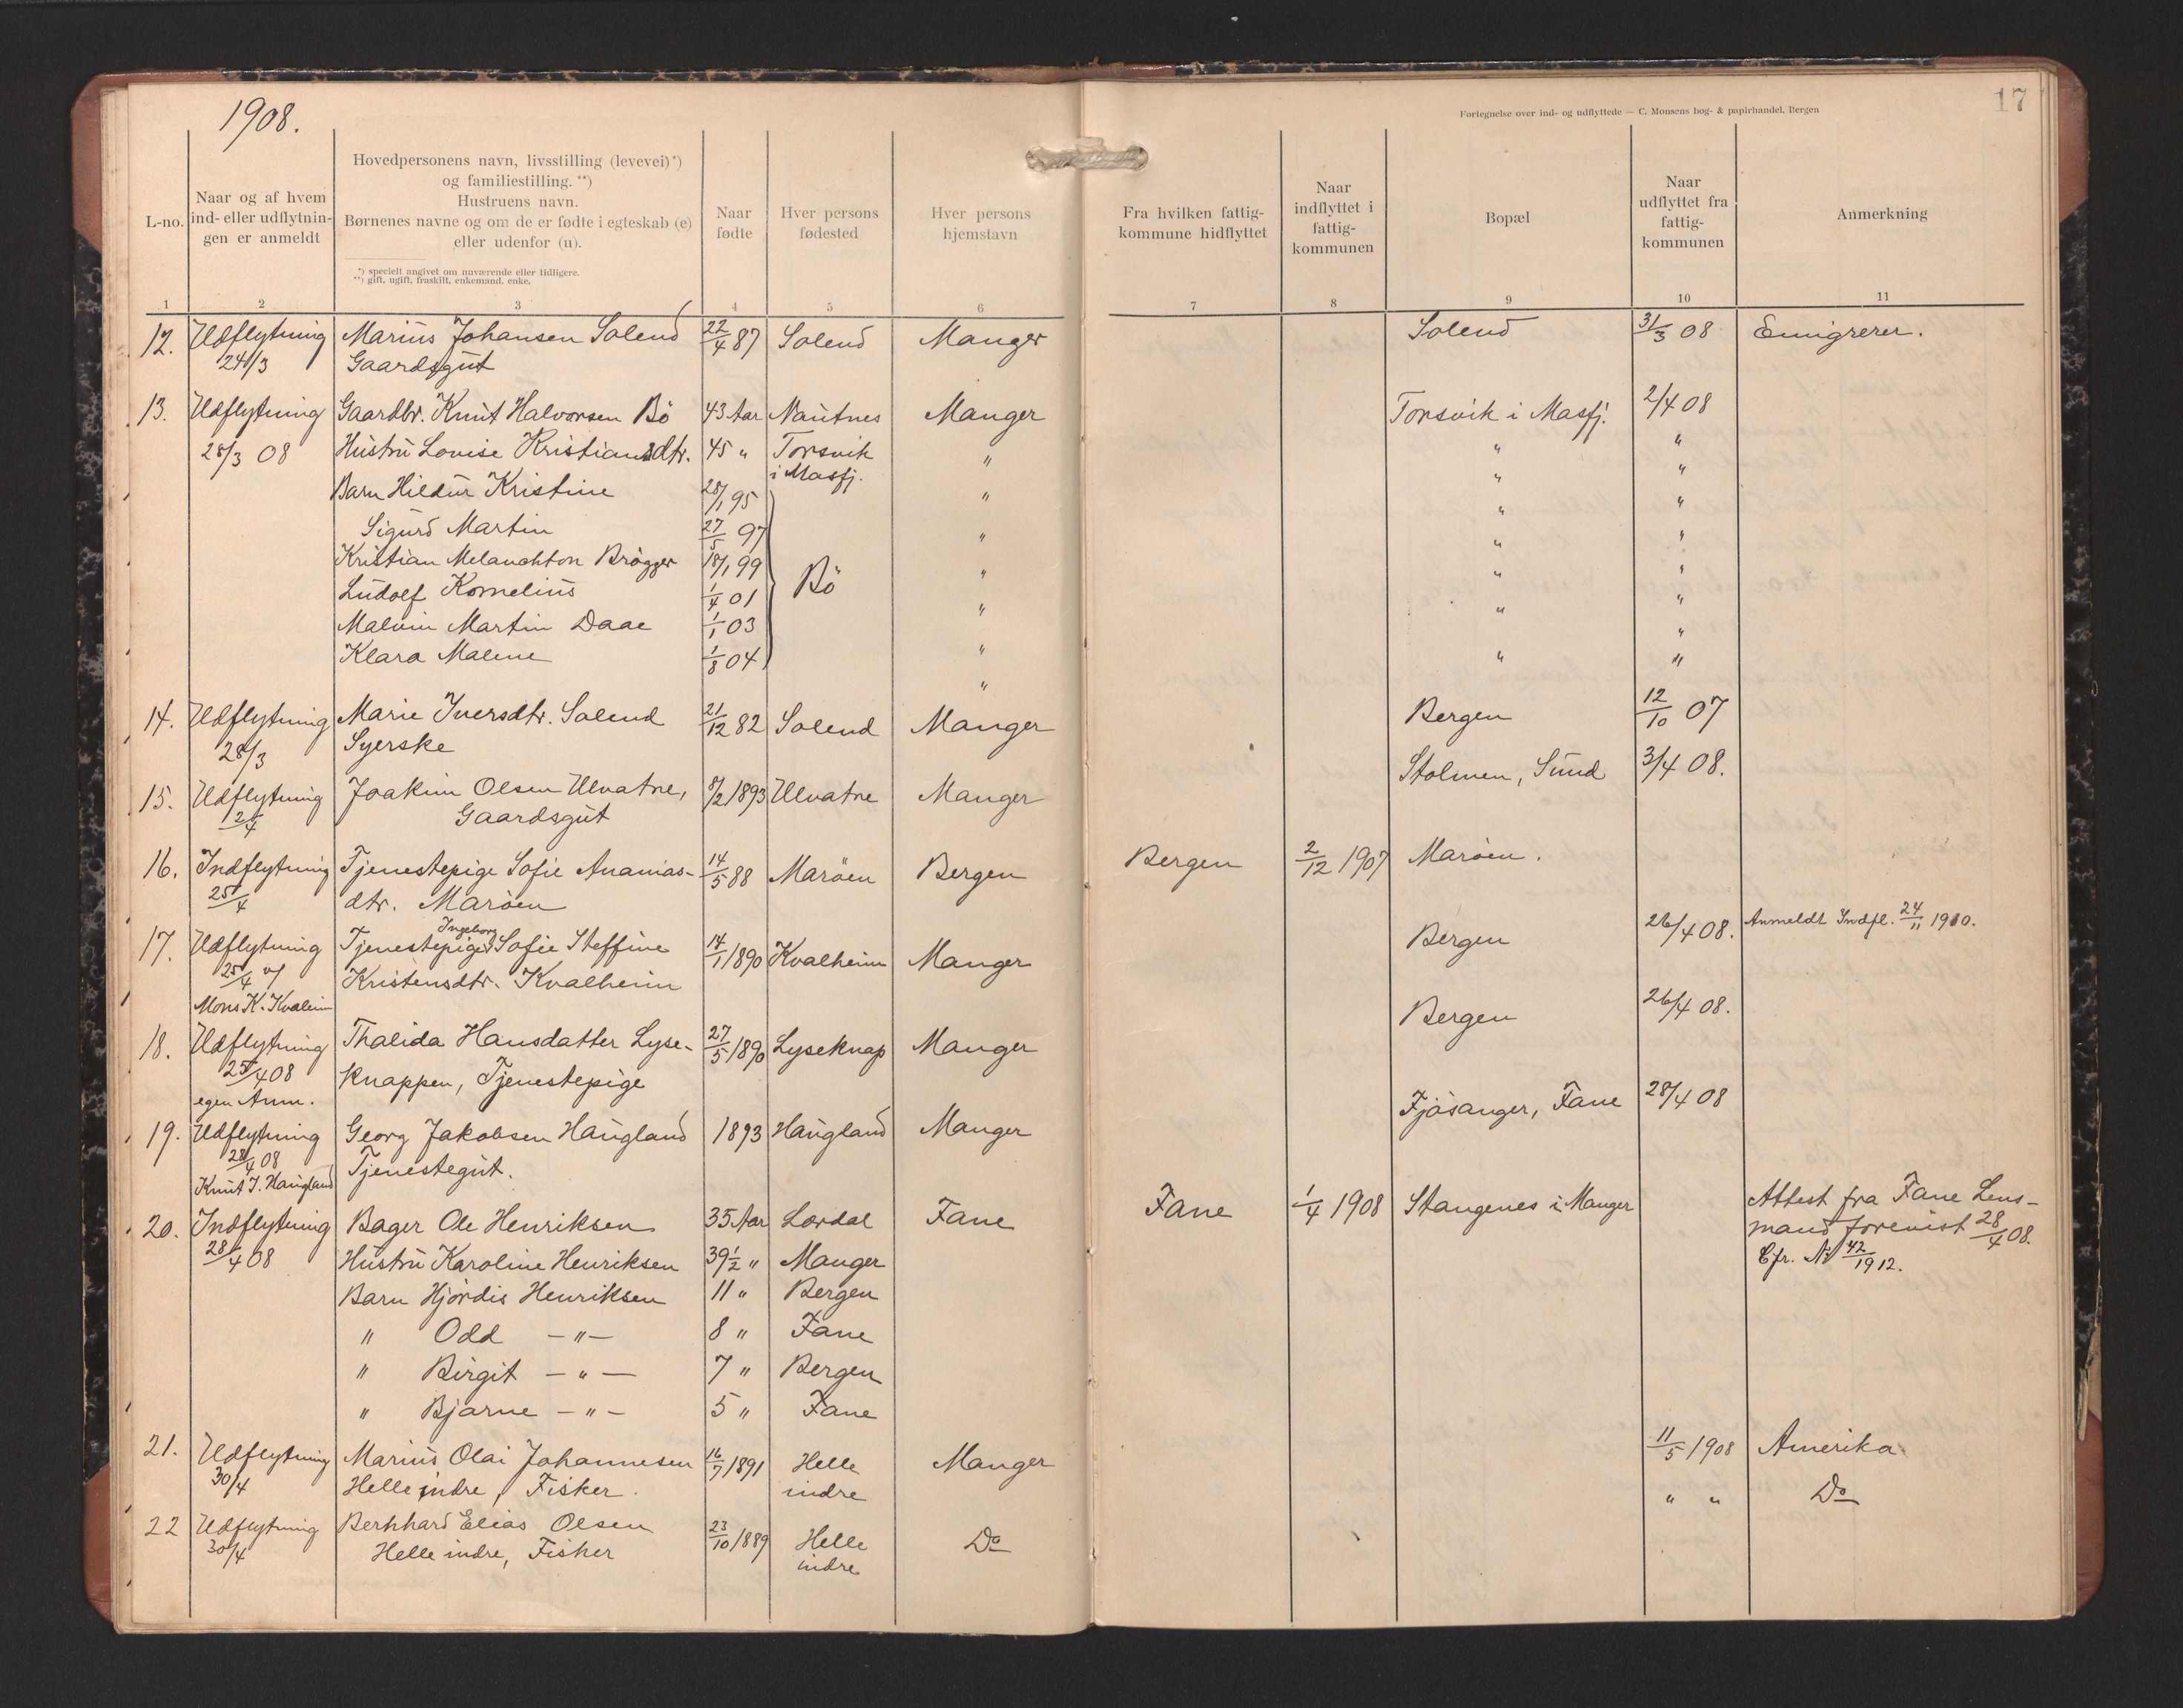 1908.
17
Fortegnelse over ind- og udflyttede — C. Monsens bog- & papirhandel, Bergen
L-no.
Naar og af hvem
ind- eller udflytnin-
gen er anmeldt
Hovedpersonens navn, livsstilling (levevei)*)
og familiestilling. **)
Hustruens navn.
Børnenes navne og om de er fødte i egteskab (e)
eller udenfor (u).
*) specielt angivet om nuværende eller tidligere.
**) gift, ugift, fraskilt, enkemand, enke.
Naar
fødte
Hver persons
fødested
Hver persons
hjemstavn
Fra hvilken fattig-
kommune hidflyttet
Naar
indflyttet i
fattig-
kommunen
Bopæl
Naar
udflyttet fra
fattig-
kommunen
Anmerkning
1 2 3 4 5 6 7 8 9 10 11
12. Udflytning Marius Johansen Solend 22/4 87 Solend Manger Solend 31/3 08 Emigrerer.
24/3 Gaardsgut
13. Udflytning Gaardbr. Knut Halvorsen Bö 43 Aar Nautnes Manger Torsvik i Masfj. 2/4 08
28/3 08 Hustru Lovise Kristiansdtr. 45 " Torsvik " " "
i Masfj.
Barn Hildur Kristine 28/1 95 " " "
Sigurd Martin 27/5 97 " " "
Kristian Melanchton Brögger 18/1 99 " " "
Ludolf Kornelius 1/4 01 Bö " " "
Malvin Martin Daae 1/1 03 " " "
Klara Malene 1/8 04 " " "
"
14. Udflytning Marie Iversdtr. Solend 21/12 82 Solend Manger Bergen 12/10 07
28/3 Syerske
15. Udflytning Joakim Olsen Ulvatne, 8/2 1893 Ulvatne Manger Stolmen, Sund 3/4 08.
2/4 Gaardsgut
16. Indflytning Tjenestepige Sofie Ananias- 14/5 88 Maröen Bergen Bergen 2/12 1907 Maröen.
25/4 dtr. Maröen
Ingeborg
17. Udflytning Tjenestepige Sofie Steffine 14/1 1890 Kvalheim Manger Bergen 26/4 08. Anmeldt Indfl. 24/11 1910.
25/4 v/ Kristensdtr. Kvalheim
Mons K. Kvaleim
18. Udflytning Thalida Hansdatter Lyse- 27/5 1890 Lyseknap Manger Bergen 26/4 08.
25/4 08 knappen, Tjenestepige
egen Anm.
19. Udflytning Georg Jakobsen Haugland 1893 Haugland Manger Fjösanger, Fane 28/4 08
28/4 08 Tjenestegut.
Knut J. Haugland
20. Indflytning Bager Ole Henriksen 35 Aar Lærdal Fane Fane 1/4 1908 Stangenes i Manger Attest fra Fane Lens-
28/4 08 mand forevist 28/4 08.
Hustru Karoline Henriksen 39 1/2 " Manger Cfr. № 42/1912.
Barn Hjördis Henriksen 11 " Bergen
" Odd — " — 8 " Fane
" Birgit — " — 7 " Bergen
" Bjarne — " — 5 " Fane
21. Udflytning Marius Olai Johannesen 16/7 1891 Helle Manger 11/5 1908 Amerika
30/4 Helle indre, Fisker. indre
22 Udflytning Berhhard Elias Olsen 23/10 1889 Helle Do " " Do
30/4 Helle indre, Fisker indre